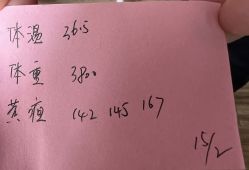 体温 36.5
体重 3800
黄疸 142 145 167
15/2